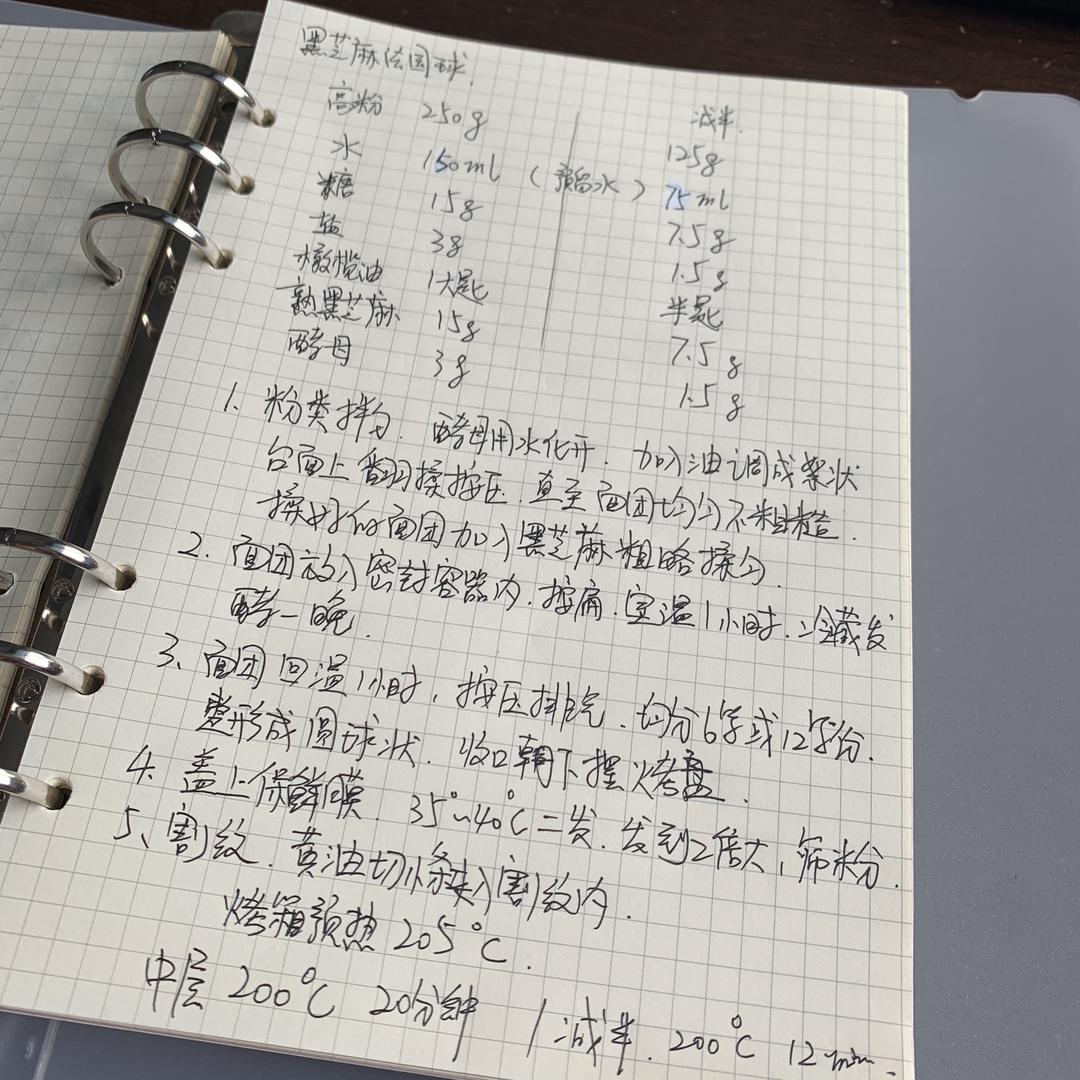 黑芝麻法国球.
减半.
高粉 250g 125g
水 150ml (预留水) 75ml
糖 15g 7.5g
盐 3g 1.5g
橄榄油 1大匙 半匙
熟黑芝麻 15g 7.5g
酵母 3g 1.5g
1. 粉类拌匀. 酵母用水化开. 加入油调成絮状
台面上翻揉按压. 直至面团均匀不粗糙.
揉好的面团加入黑芝麻粗略揉匀.
2. 面团放入密封容器内. 按扁. 室温1小时. 冷藏发
酵一晚.
3、面团回温1小时, 按压排气. 均分6等或12等份.
整形成圆球状. 收口朝下摆烤盘.
4. 盖上保鲜膜. 35°~40°C二发. 发到2倍大, 筛粉.
5、割纹. 黄油切小条夹入割纹内.
烤箱预热 205°C.
中层 200°C 20分钟 / 减半. 200°C 12min.